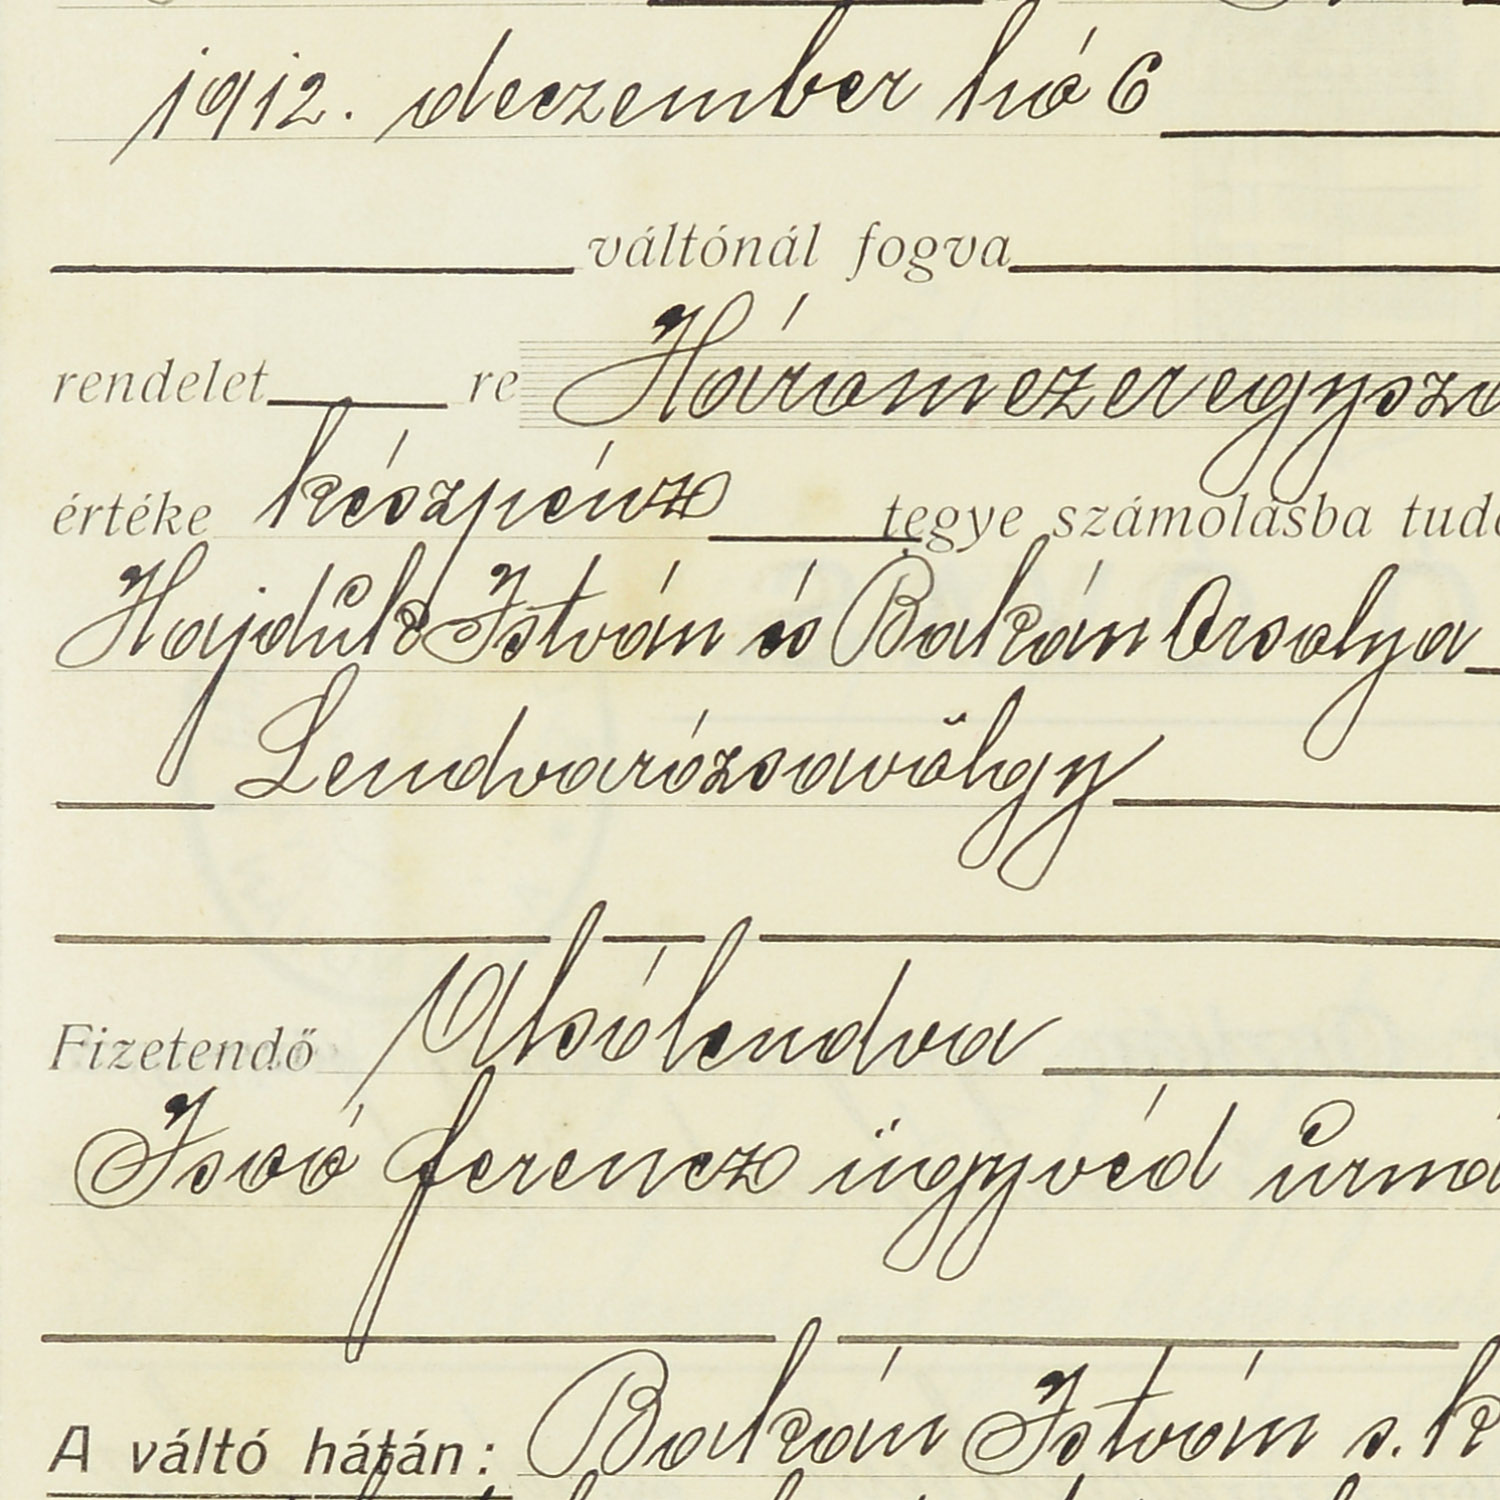 1912. deczember hó 6
váltónál fogva
rendelet re Háromezeregysza
értéke készpénz tegye számolásba tudó
Hajdúk István és Bakán Orsolya
Lendvarózsavölgy
Fizetendő Alsólendva
Isoó ferencz ügyvéd úrná
A váltó hátán: Bakán István s. k